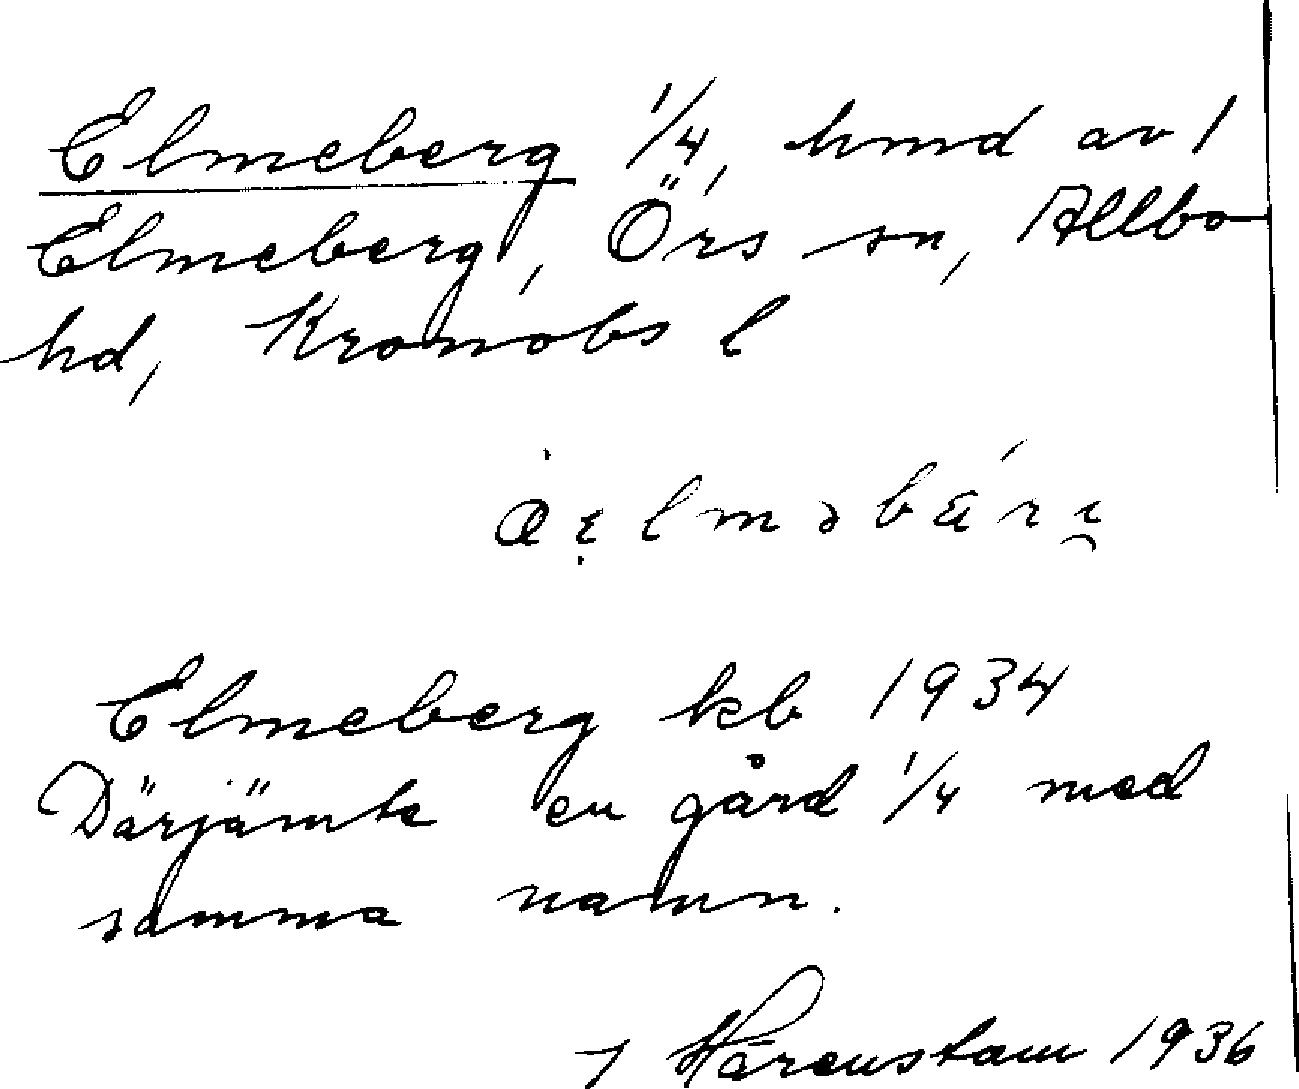 Elmeberg 1/4, hmd av 1
Elmeberg, Örs sn, Allbo
hd, Kronobs l
Elmeberg kb 1934
Därjämte en gård 1/4 med
samma namn.
Härenstam 1936